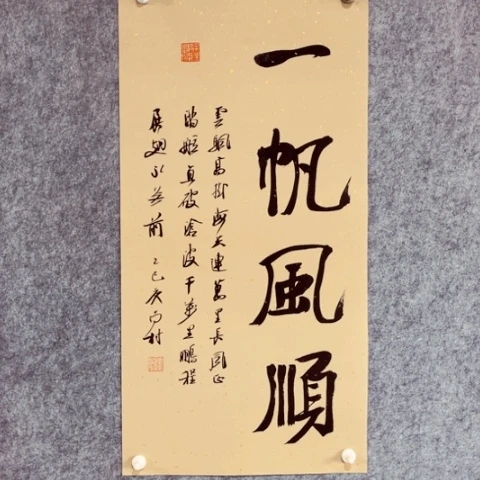 一帆風順
雲帆高掛海天連萬里長風正
直破滄波千萬里鵬程
展翅永前 乙巳村